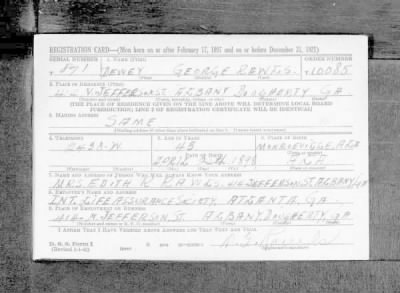 REGISTRATION CARD—(Men born on or after February 17, 1897 and on or before December 31, 1921)
SERIAL NUMBER 1. NAME (Print) ORDER NUMBER
T 871 DEWEY GEORGE RAWLS T 10085
(First) (Middle) (Last)
2. PLACE OF RESIDENCE (Print)
N. JEFFERSON ST ALBANY DOUGHERTY GA
[THE PLACE OF RESIDENCE GIVEN ON THE LINE ABOVE WILL DETERMINE LOCAL BOARD
JURISDICTION; LINE 2 OF REGISTRATION CERTIFICATE WILL BE IDENTICAL]
3. MAILING ADDRESS
SAME
4. TELEPHONE 5. AGE IN YEARS 6. PLACE OF BIRTH
2438-W 43 MONROEVILLE, ALA
DATE OF BIRTH
APRIL 1898 ALA
7. NAME AND ADDRESS OF PERSON WHO WILL ALWAYS KNOW YOUR ADDRESS
MRS. EDITH K RAWLS JEFFERSON ST. ALBANY, GA
8. EMPLOYER'S NAME AND ADDRESS
INT. LIFE ASSURANCE SOCIETY, ATLANTA, GA
9. PLACE OF EMPLOYMENT OR BUSINESS
N. JEFFERSON ST. ALBANY DOUGHERTY, GA
I AFFIRM THAT I HAVE VERIFIED ABOVE ANSWERS AND THAT THEY ARE TRUE.
D. S. S. Form 1
(Revised 1-1-42) (over)